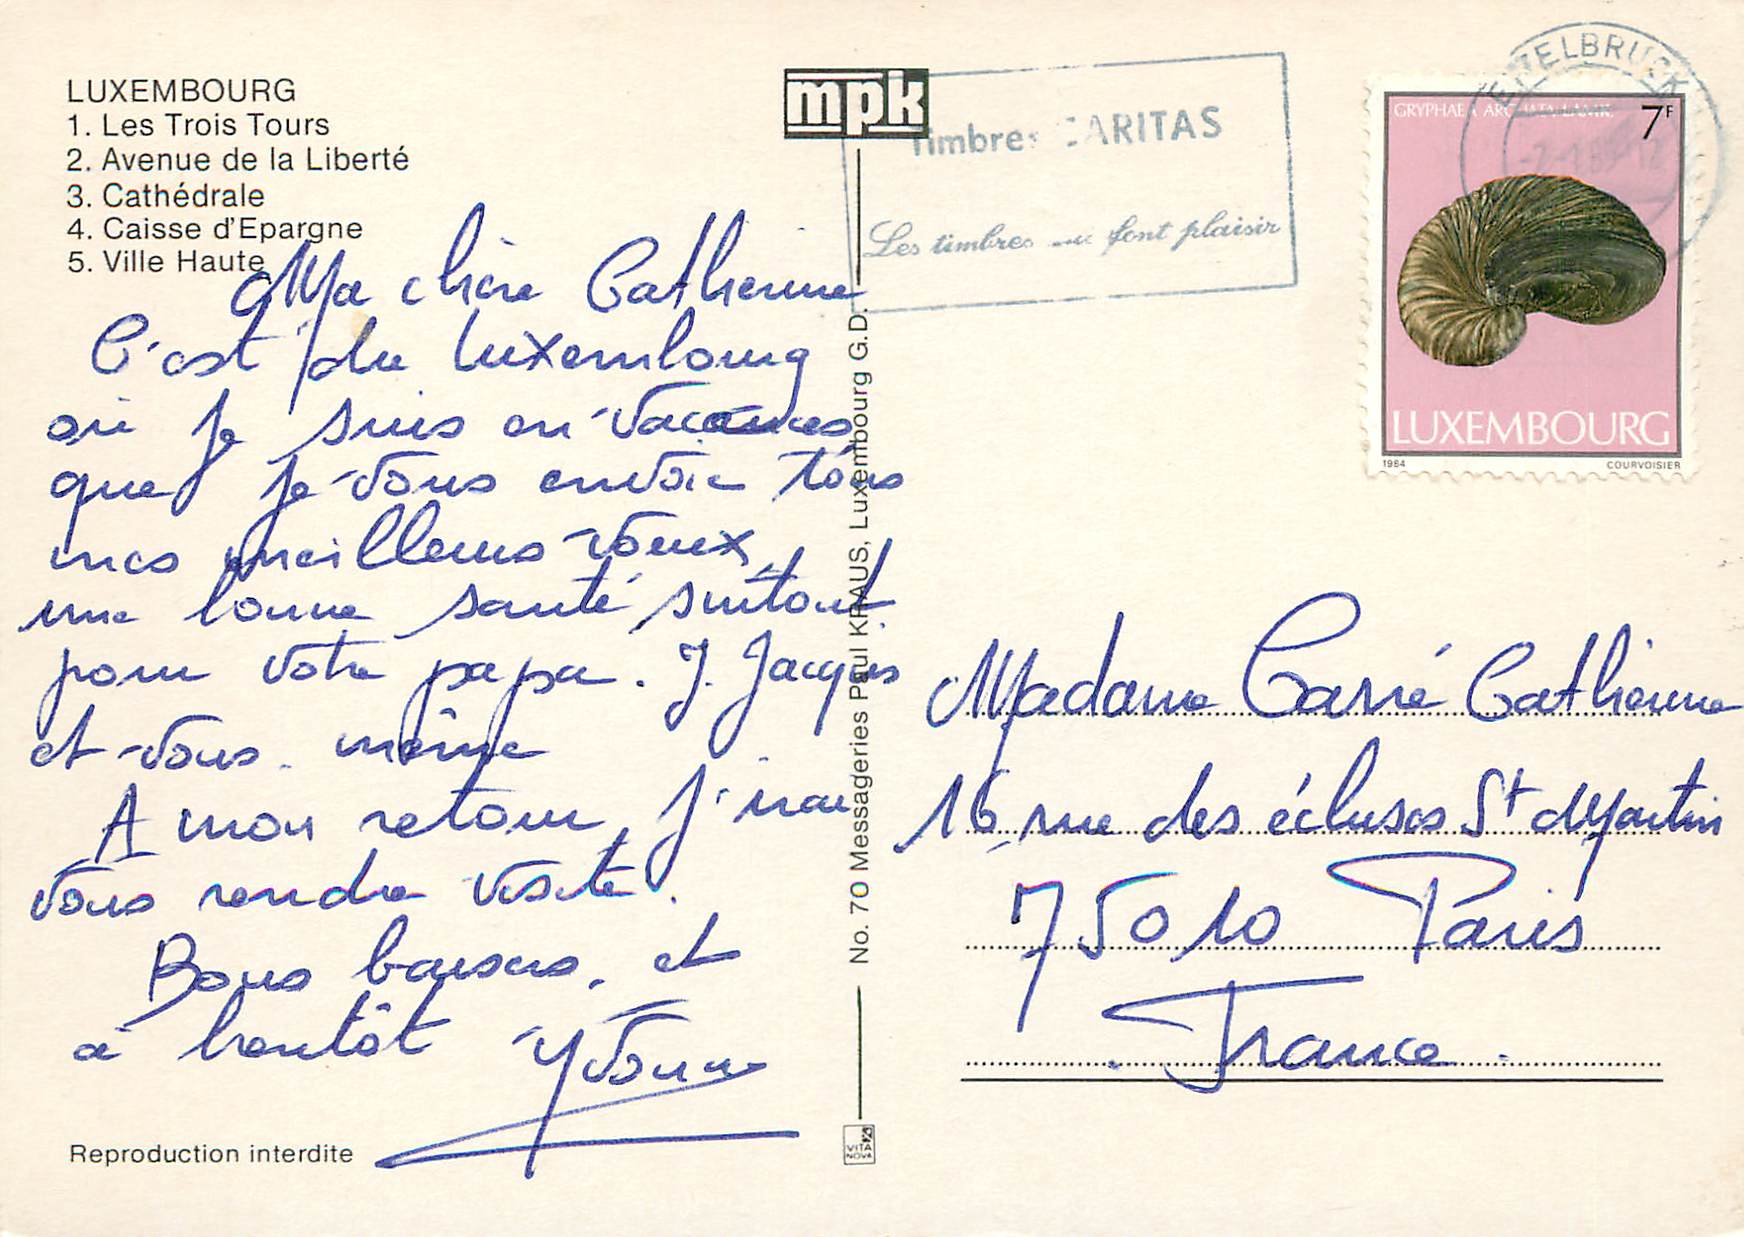 LUXEMBOURG
1. Les Trois Tours
2. Avenue de la Liberté
3. Cathédrale
4. Caisse d'Epargne
5. Ville Haute
Ma chère Catherine
C'est du Luxembourg
où je suis en vacances
que je vous envoie tous
mes meilleurs voeux,
une bonne santé surtout
pour votre papa. J. Jacques
et vous même
A mon retour, j'irai
vous rendre visite.
Bons baisers, et
à bientôt Yvonne
Reproduction interdite
mpk
No. 70 Messageries Paul KRAUS, Luxembourg G.D.
VITA
NOVA
Timbres CARITAS
Les timbres qui font plaisir
ETTELBRUCK
GRYPHAEA ARCUATA LAMK.
7F
LUXEMBOURG
1984 COURVOISIER
Madame Carré Catherine
16, rue des écluses St Martin
75010 Paris
France.